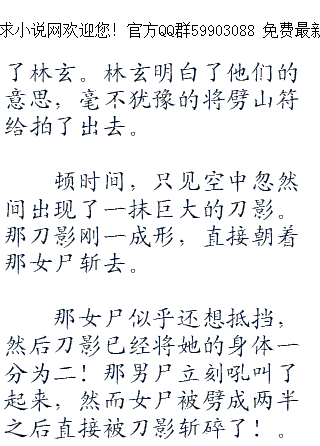 求小说网欢迎您！官方QQ群59903088 免费最新
了林玄。林玄明白了他们的
意思，毫不犹豫的将劈山符
给拍了出去。
顿时间，只见空中忽然
间出现了一抹巨大的刀影。
那刀影刚一成形，直接朝着
那女尸斩去。
那女尸似乎还想抵挡，
然后刀影已经将她的身体一
分为二！那男尸立刻吼叫了
起来，然而女尸被劈成两半
之后直接被刀影斩碎了！。